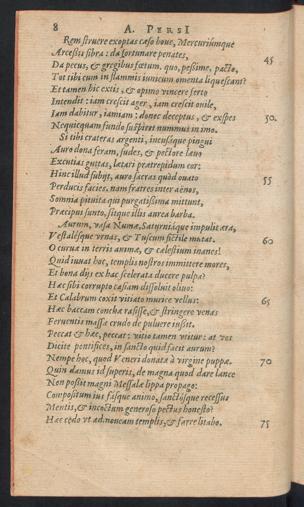 8 A. PERSI
Rem struere exoptas caso boue, Mercuriúmque
Arcessis fibra: da fortunare penates,
Da pecus, & gregibus fœtum. quo, pessime, pacto, 45
Tot tibi cum in flammis iunctum omenta liquescant?
Et tamen hic extis, & opimo vincere ferto
Intendit: iam crescit ager, iam crescit ouile,
Iam dabitur, iamiam: donec deceptus, & exspes
Nequicquam fundo suspiret nummus in imo. 50.
Si tibi crateras argenti, incusáque pingui
Auro dona feram, sudes, & pectore lauo
Excutias guttas, lætari prætrepidum cor:
Hinc illud subijt, auro sacras quòd ouato
Perducis facies. nam fratres inter aënos, 55
Somnia pituita qui purgatissima mittunt,
Præcipui sunto, sitque illis aurea barba.
Aurum, vasa Numæ, Saturniáque impulit æra,
Vestalésque vrnas, & Tuscum fictile mutat.
O curuæ in terris animæ, & cælestium inanes! 60
Quid iuuat hoc, templis nostros immittere mores,
Et bona dijs ex hac scelerata ducere pulpa?
Hæc sibi corrupto casiam dissoluit oliuo:
Et Calabrum coxit vitiato murice vellus:
Hæc baccam conchæ rasisse, & stringere venas 65
Feruentis massæ crudo de puluere iussit.
Peccat & hæc, peccat: vitio tamen vtitur: at vos
Dicite pontifices, in sancto quid facit aurum?
Nempe hoc, quod Veneri donatæ à virgine puppæ.
Quin damus id superis, de magna quod dare lance 70
Non possit magni Messalæ lippa propago:
Compositum ius fásque animo, sanctósque recessus
Mentis, & incoctum generoso pectus honesto?
Hæc cedo vt admoueam templis, & farre litabo. 75